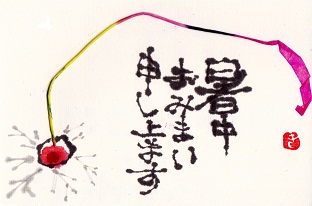 暑中
おみまい
申し上ます